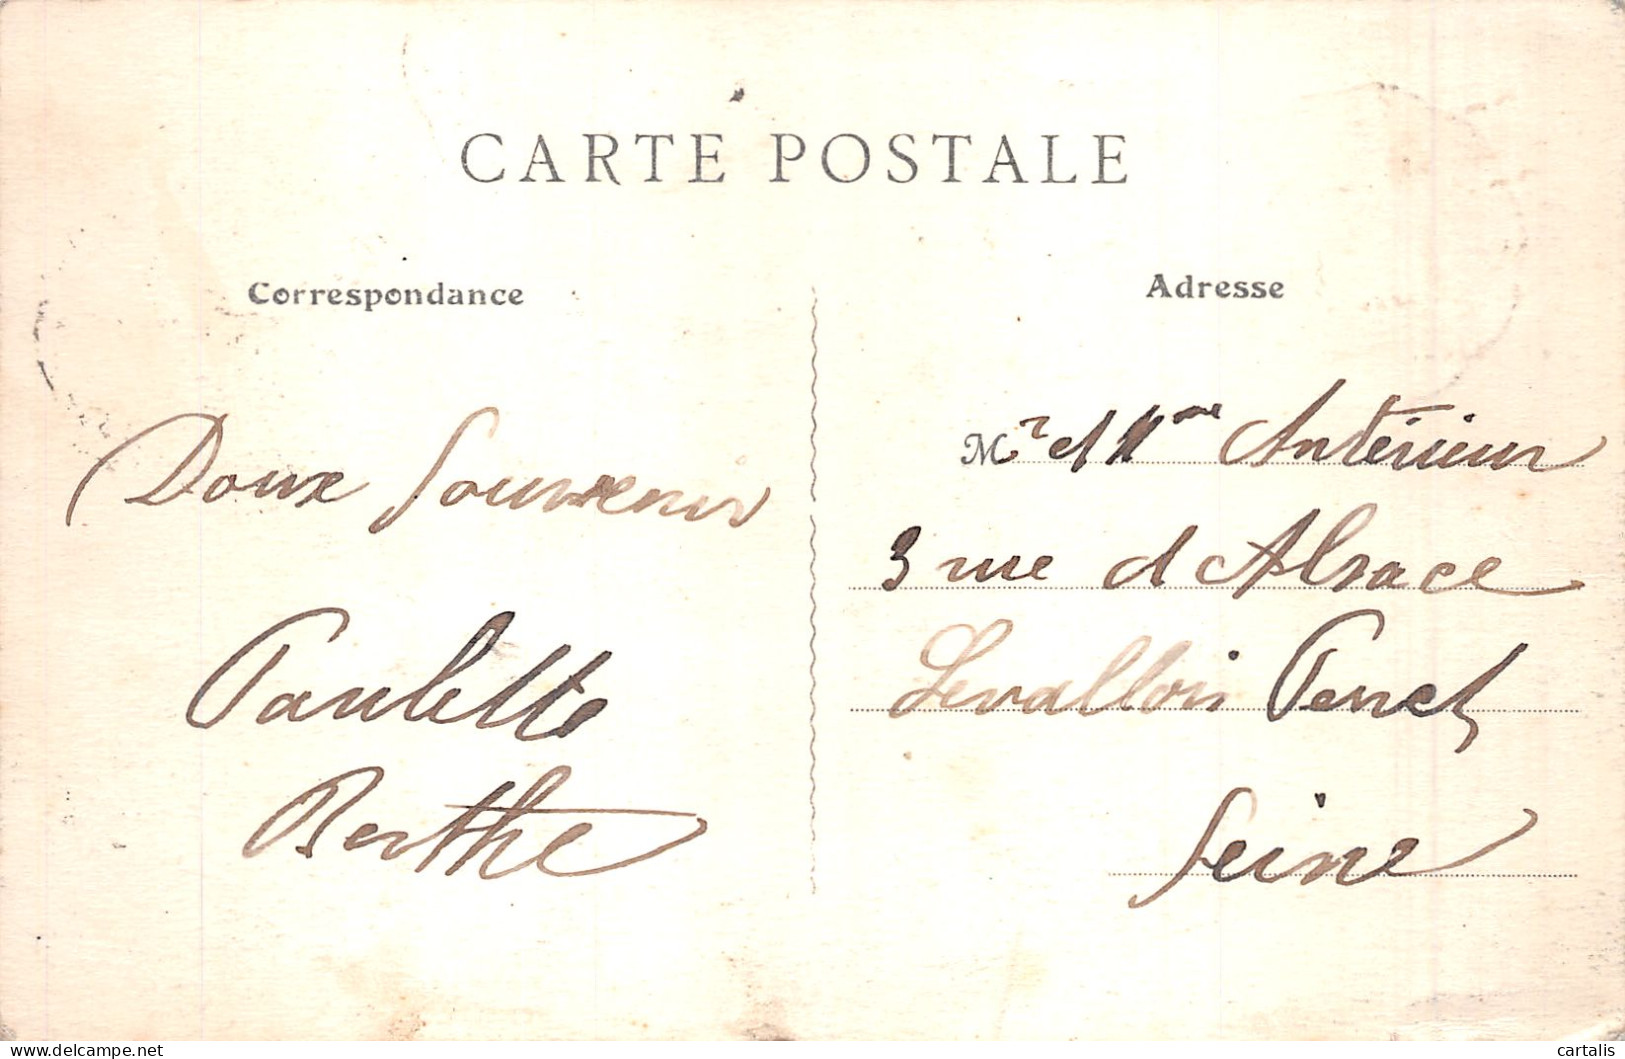 CARTE POSTALE
Correspondance
Doux Souvenir
Paulette
Berthe
Adresse
Mr et Mme Antérieur
3 rue d Alsace
Levallois Perret
Seine
www.delcampe.net
cartalis